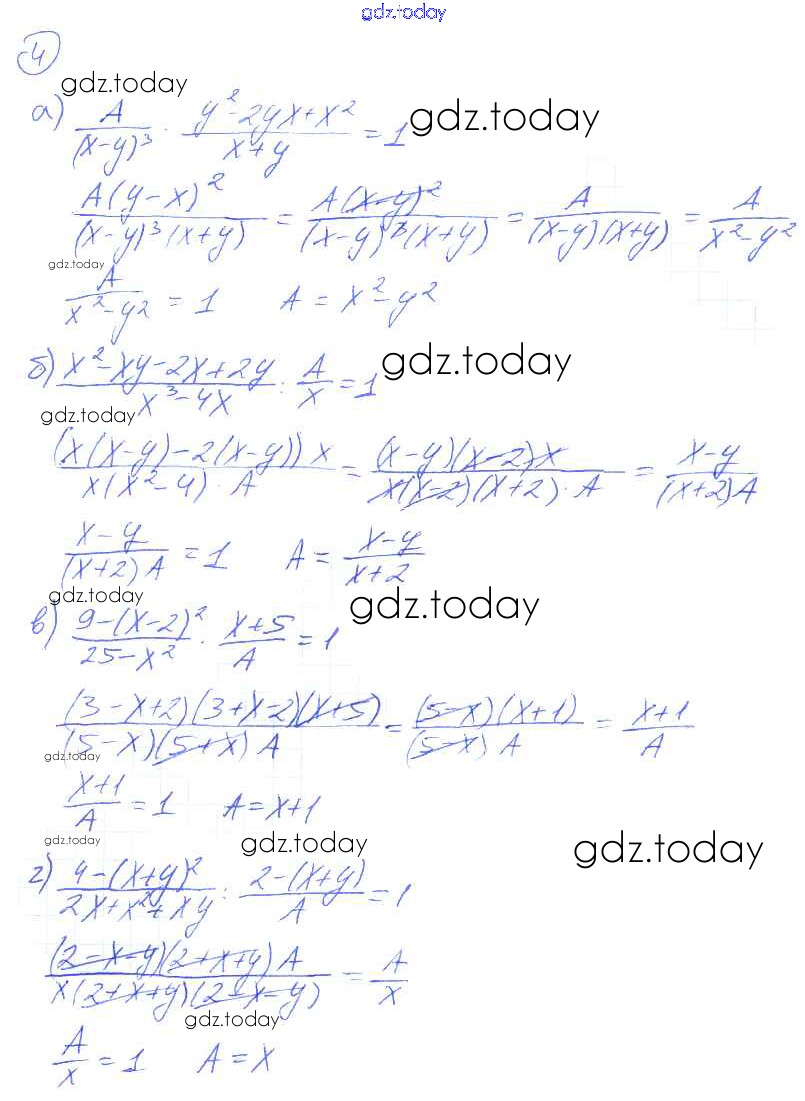 gdz.today
4
gdz.today
а) A/(x-y)³ · (y²-2yx+x²)/(x+y) = 1 gdz.today
A(y-x)²/((x-y)³(x+y)) = A(x-y)²/((x-y)³(x+y)) = A/((x-y)(x+y)) = A/(x²-y²)
gdz.today
A/(x²-y²) = 1 A = x²-y²
б) (x²-xy-2x+2y)/(x³-4x) : A/x = 1 gdz.today
gdz.today
(x(x-y)-2(x-y))x/(x(x²-4)·A) = (x-y)(x-2)x/(x(x-2)(x+2)·A) = (x-y)/((x+2)A)
(x-y)/((x+2)A) = 1 A = (x-y)/(x+2)
gdz.today gdz.today
в) (9-(x-2)²)/(25-x²) · (x+5)/A = 1
(3-x+2)(3+x-2)(x+5)/((5-x)(5+x)A) = (5-x)(x+1)/((5-x)A) = (x+1)/A
gdz.today
(x+1)/A = 1 A = x+1
gdz.today gdz.today gdz.today
г) (4-(x+y)²)/(2x+x²+xy) : (2-(x+y))/A = 1
(2-x-y)(2+x+y)A/(x(2+x+y)(2-x-y)) = A/x
gdz.today
A/x = 1 A = x